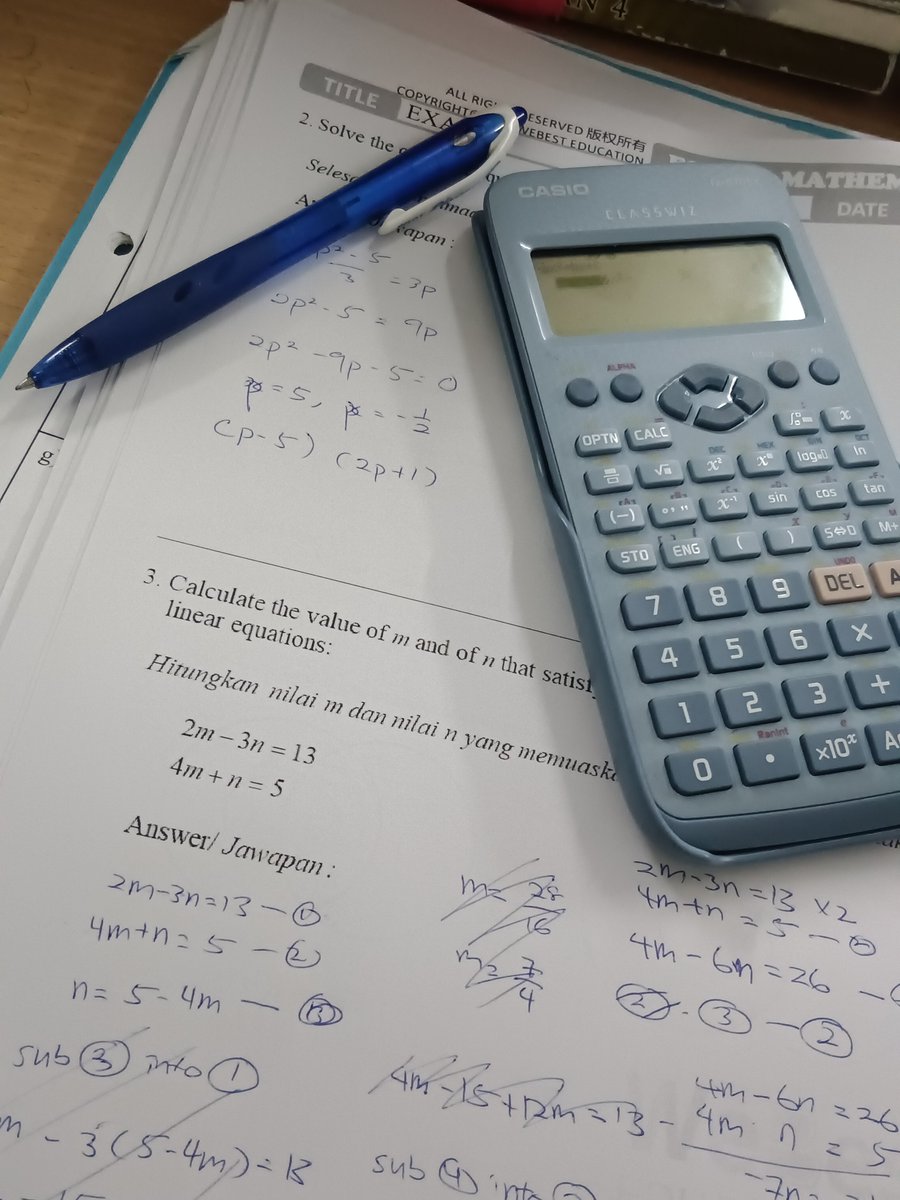 AN 4
TITLE
ALL RIG RESERVED 版权所有
COPYRIGHT WEBEST EDUCATION
EXA
MATHEM
DATE
2. Solve the
Seles
apan :
p² - 5
3
= 3p
2p² - 5 = 9p
2p² - 9p - 5 = 0
p = 5, p = - 1/2
(p - 5) (2p + 1)
g.
3. Calculate the value of m and of n that satisfy
linear equations:
Hitungkan nilai m dan nilai n yang memuaska
2m – 3n = 13
4m + n = 5
Answer/ Jawapan :
2m - 3n = 13 — ①
4m + n = 5 — ②
n = 5 - 4m — ③
sub ③ into ①
m - 3(5 - 4m) = 13
m = 28/16
m = 7/4
4m - 15 + 12m = 13
2m - 3n = 13 × 2
4m + n = 5 — ②
4m - 6n = 26 —
② - ③ — ②
4m - 6n = 26
- 4m n = 5
-7n =
sub ④ into
CASIO
CLASSWIZ
ALPHA
OPTN CALC x
x² log ln
(−) °,,, x⁻¹ sin cos tan
STO ENG ( ) S⇔D M+
7 8 9 DEL A
4 5 6 × 
1 2 3 +
RanInt
0 • ×10ˣ A